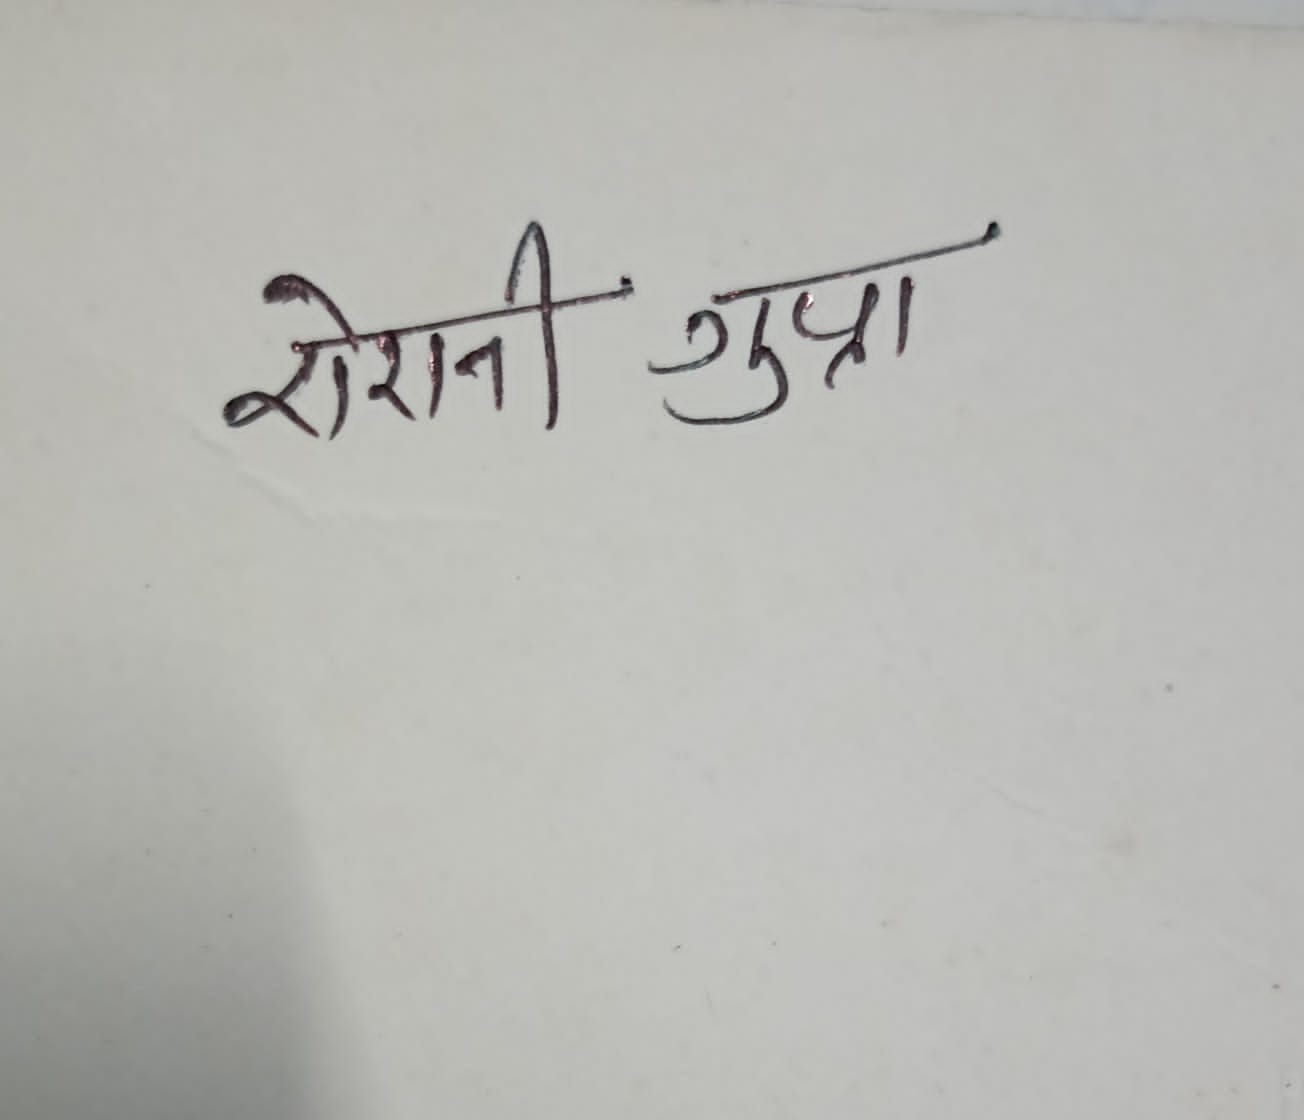 रोशनी गुप्ता